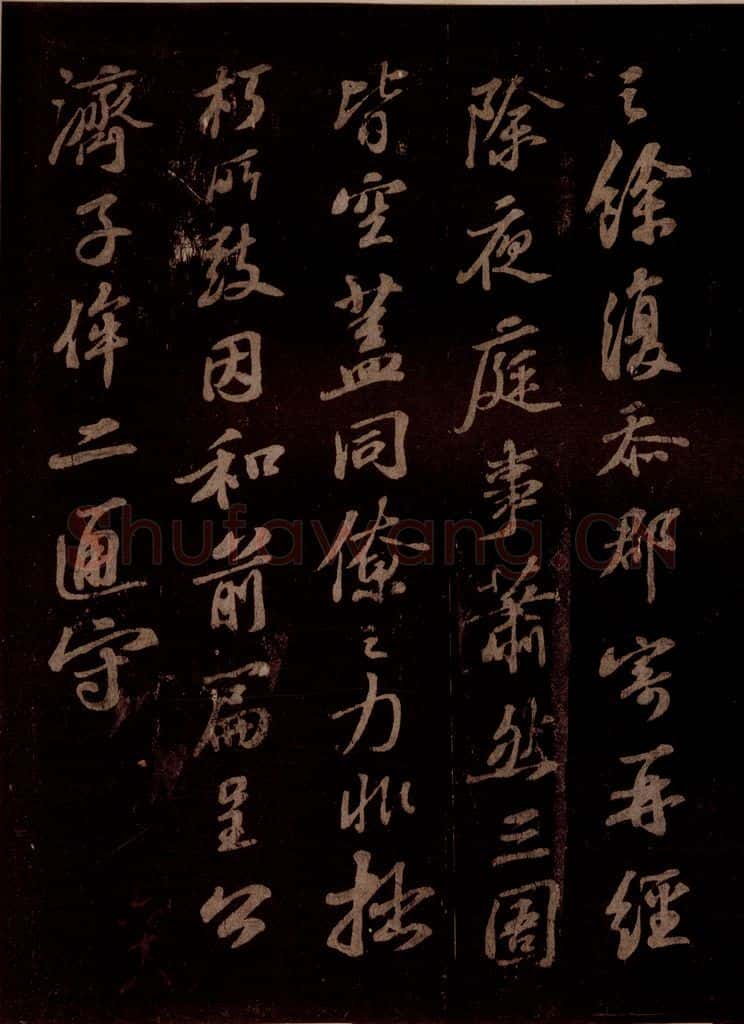 之餘復忝郡寄再經
除夜庭事蕭然三圄
皆空蓋同僚之力非拙
朽所致因和前篇呈公
濟子侔二通守
Shufawang.CN